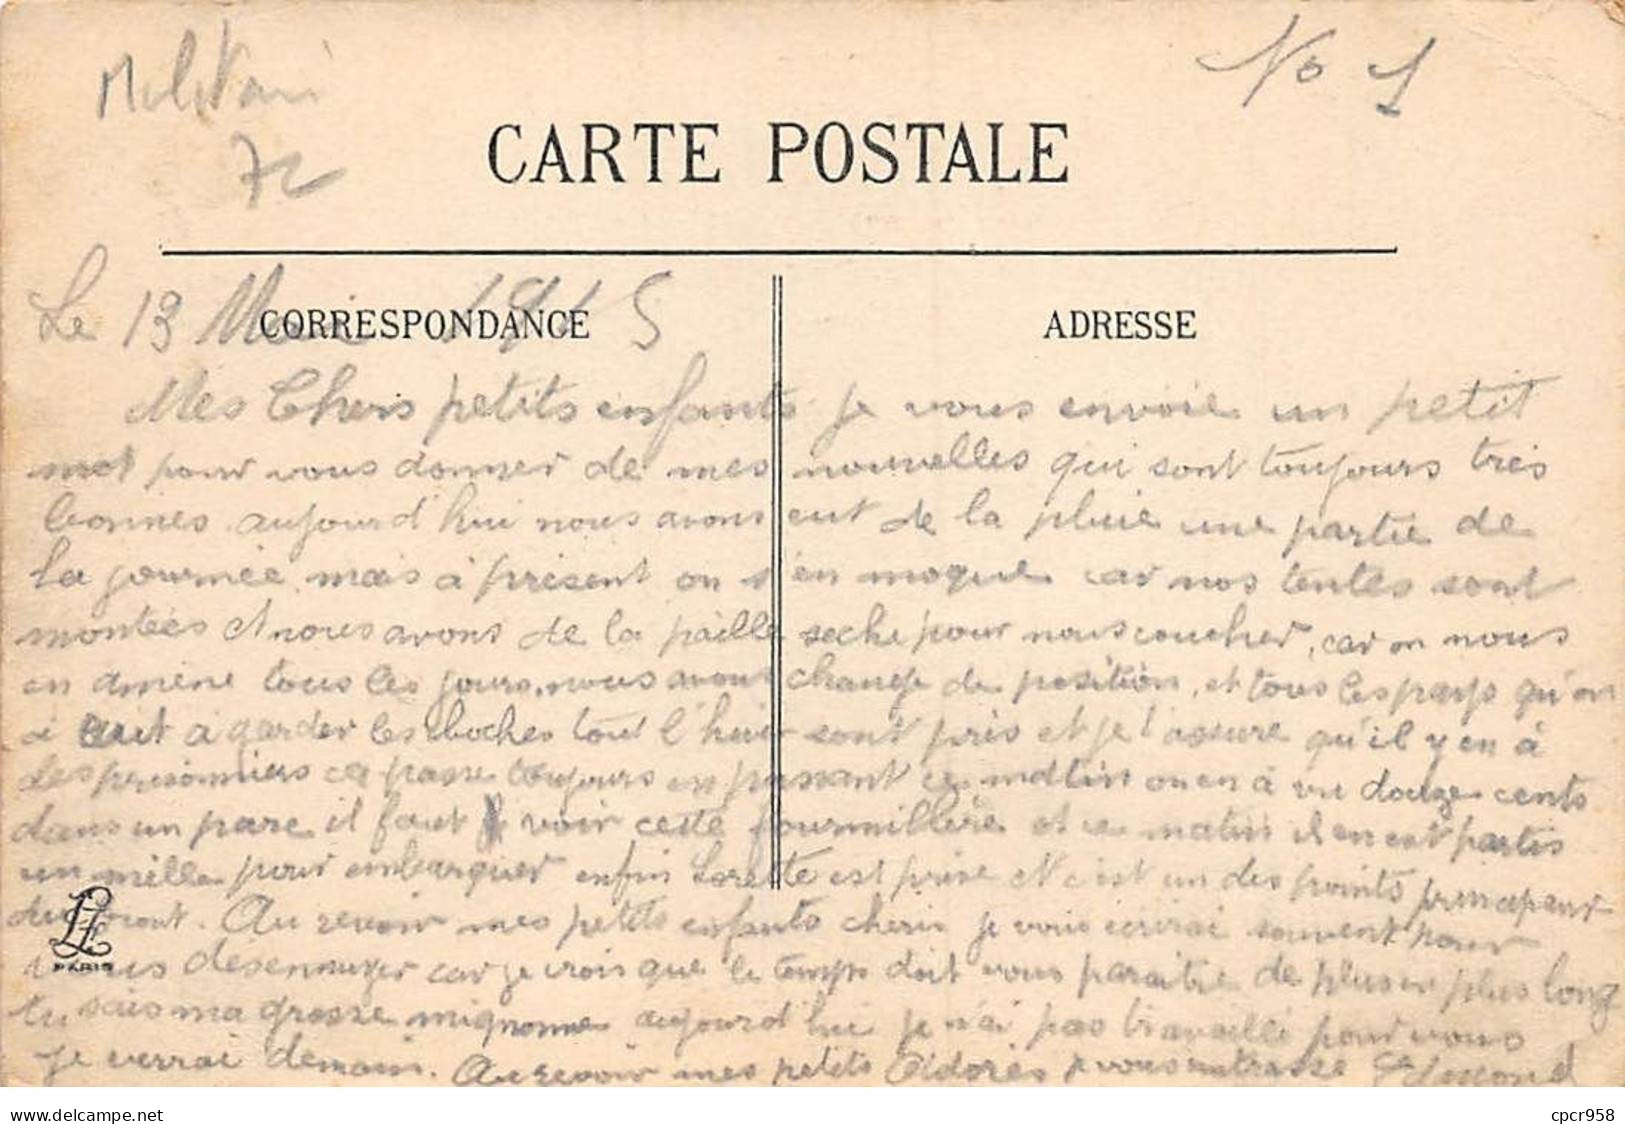 Militari
No 1
72
CARTE POSTALE
Le 13 Mai 1915
CORRESPONDANCE
ADRESSE
Mes Chers petits enfants je vous envoie un petit
mot pour vous donner de mes nouvelles qui sont toujours très
bonnes aujourd'hui nous avons eut de la pluie une partie de
la journée mais à présent on s'en moque car nos tentes sont
montées et nous avons de la paille seche pour nous coucher, car on nous
en amène tous les jours, nous avons changé de position, et tous les pays qu'on
à eut à garder les boches tout l'hiver sont pris et je t'assure qu'il y en à
des prisonniers ça passe toujours en passant ce matin on en à vu douze cents
dans un parc il faut voir cette fourmillière et ce matin il en est partis
un mille pour embarquer enfin Lorette est prise et c'est un des points principaux
du front. Au revoir mes petits enfants cheris je vous écrirai souvent pour
vous désennuyer car je crois que le temps doit vous paraitre de plus en plus long
tu sais ma grosse mignonne aujourd'hui je n'ai pas travaillé pour vous
je verrai demain. Au revoir mes petits Adorés je vous embrasse Edmond
LL
PARIS
delcampe.net
cpcr958